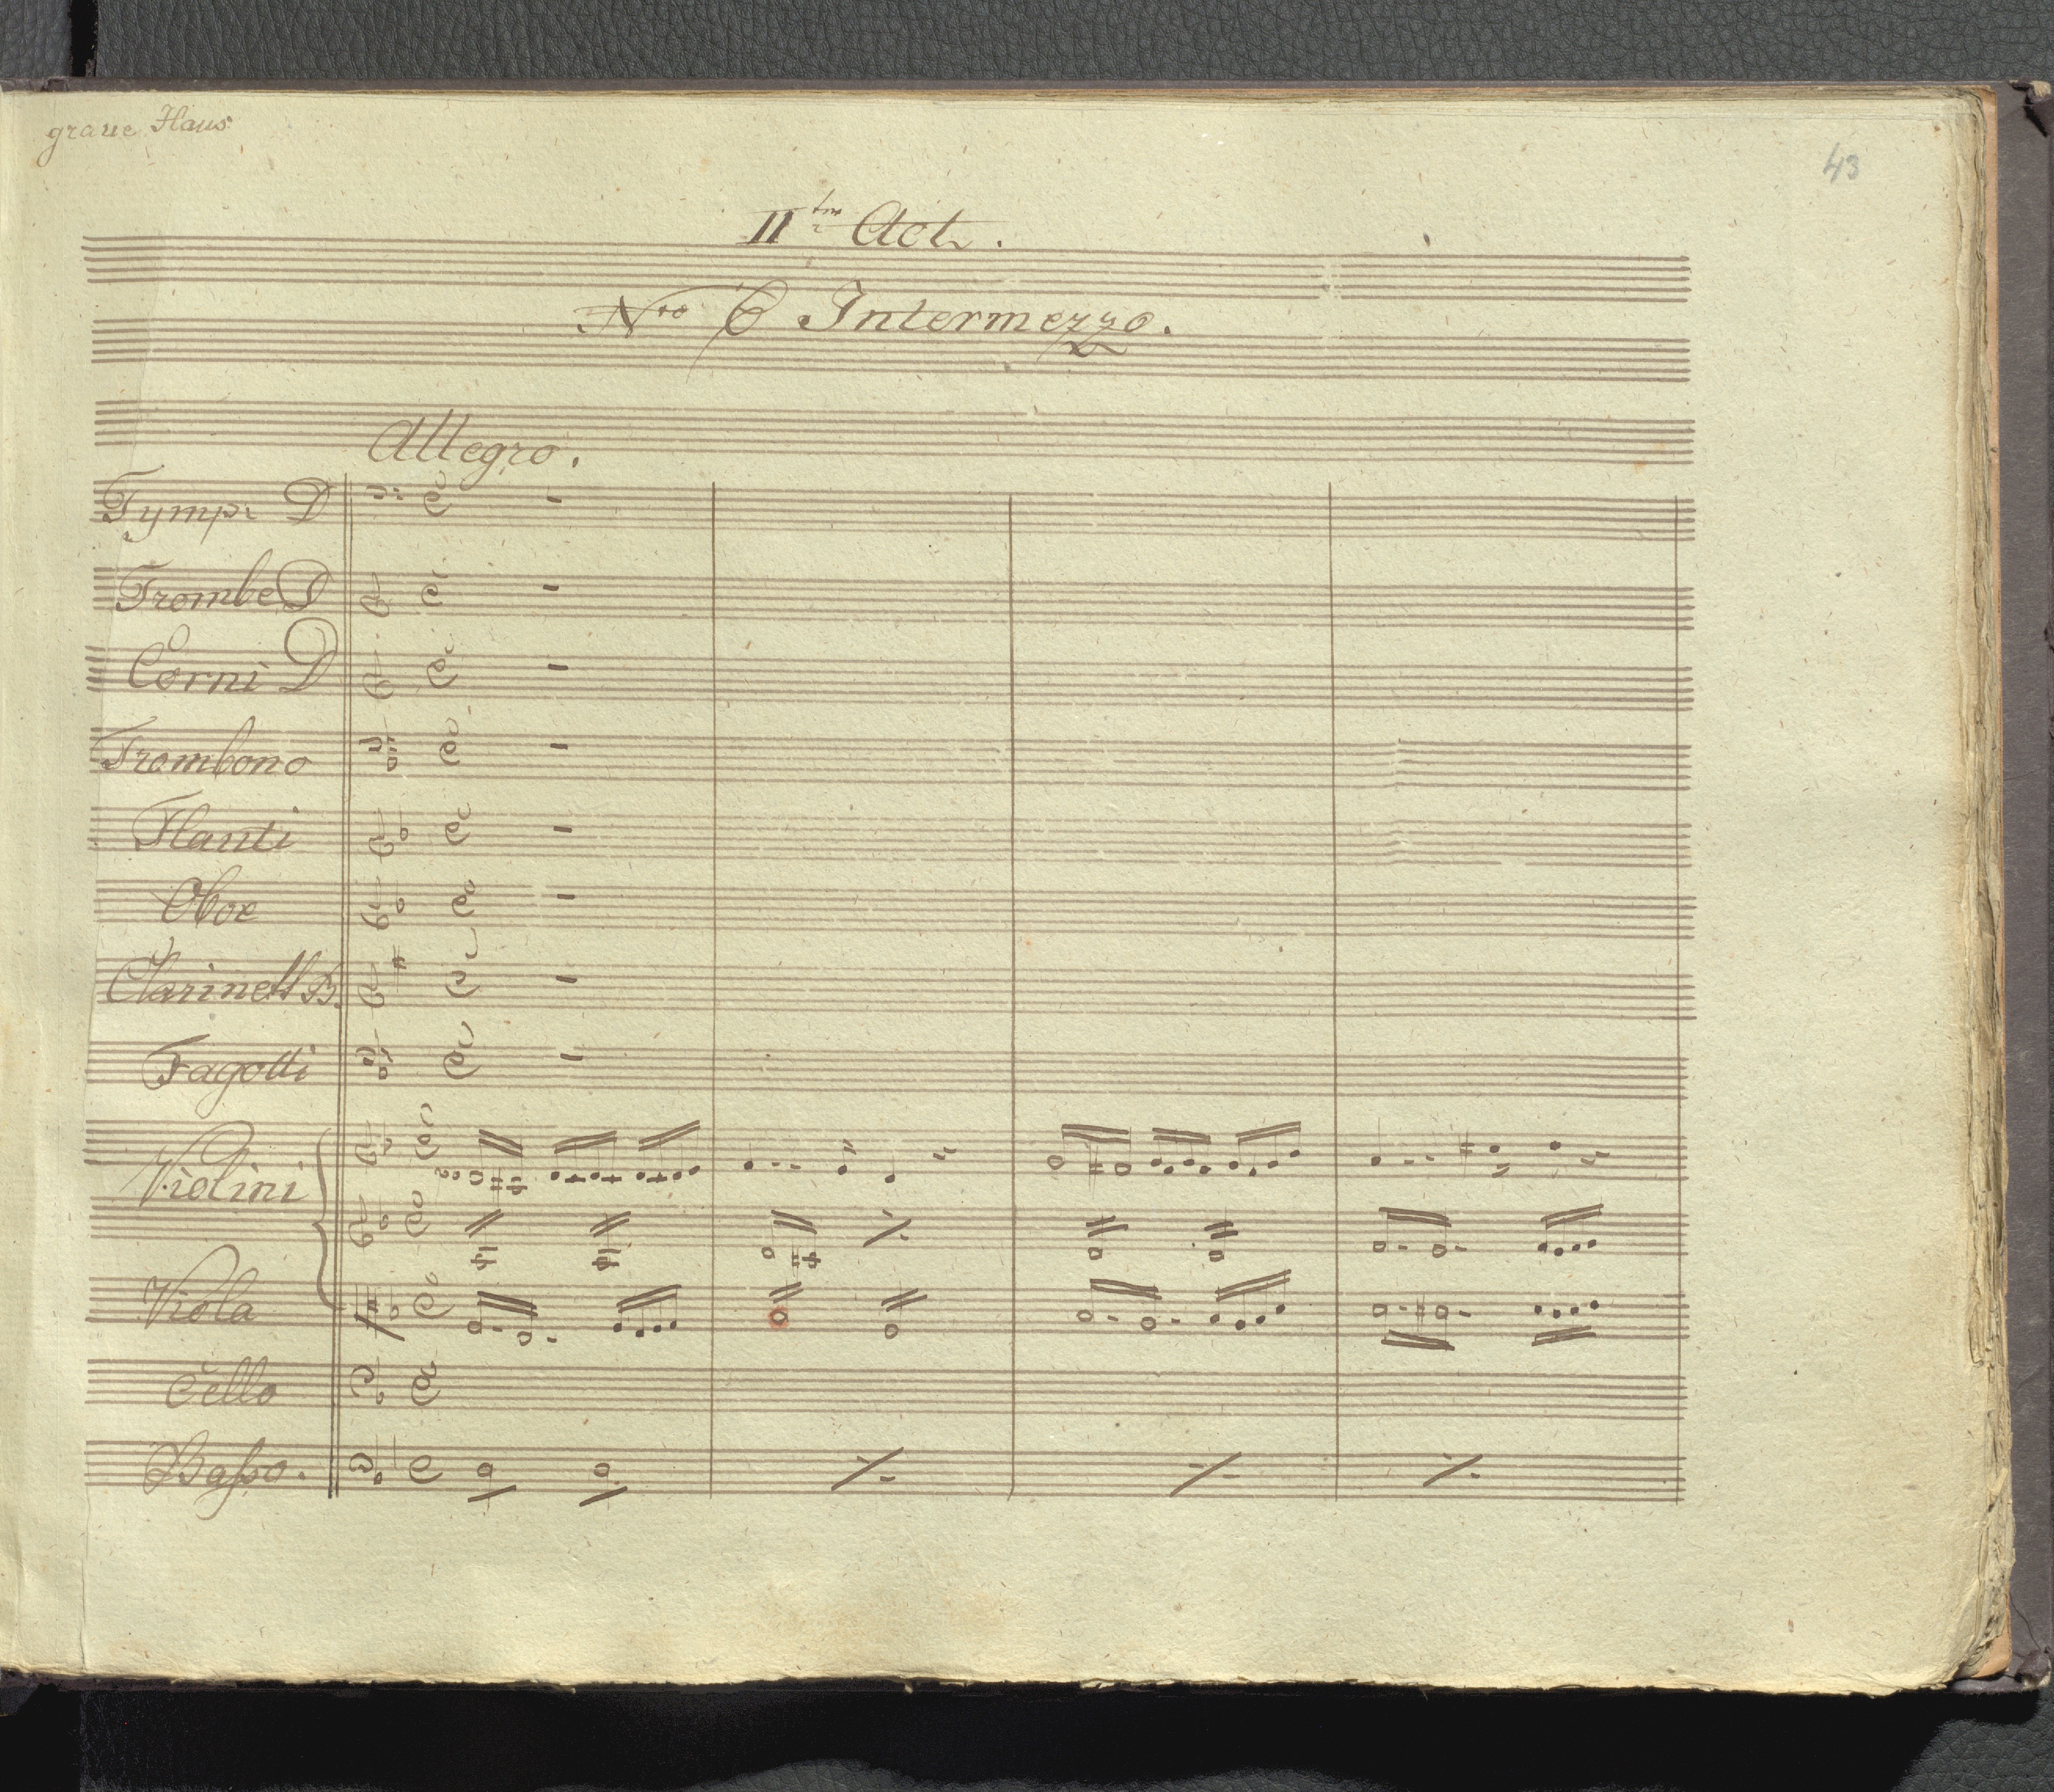 graue Haus
43
IIter Act.
Nro 6 Intermezzo.
Allegro.
Tymp: D
Trombe D
Corni D
Trombono
Flauti
Oboe
Clarinett B.
Fagotti
Violini
Viola
Cello
Baſso.